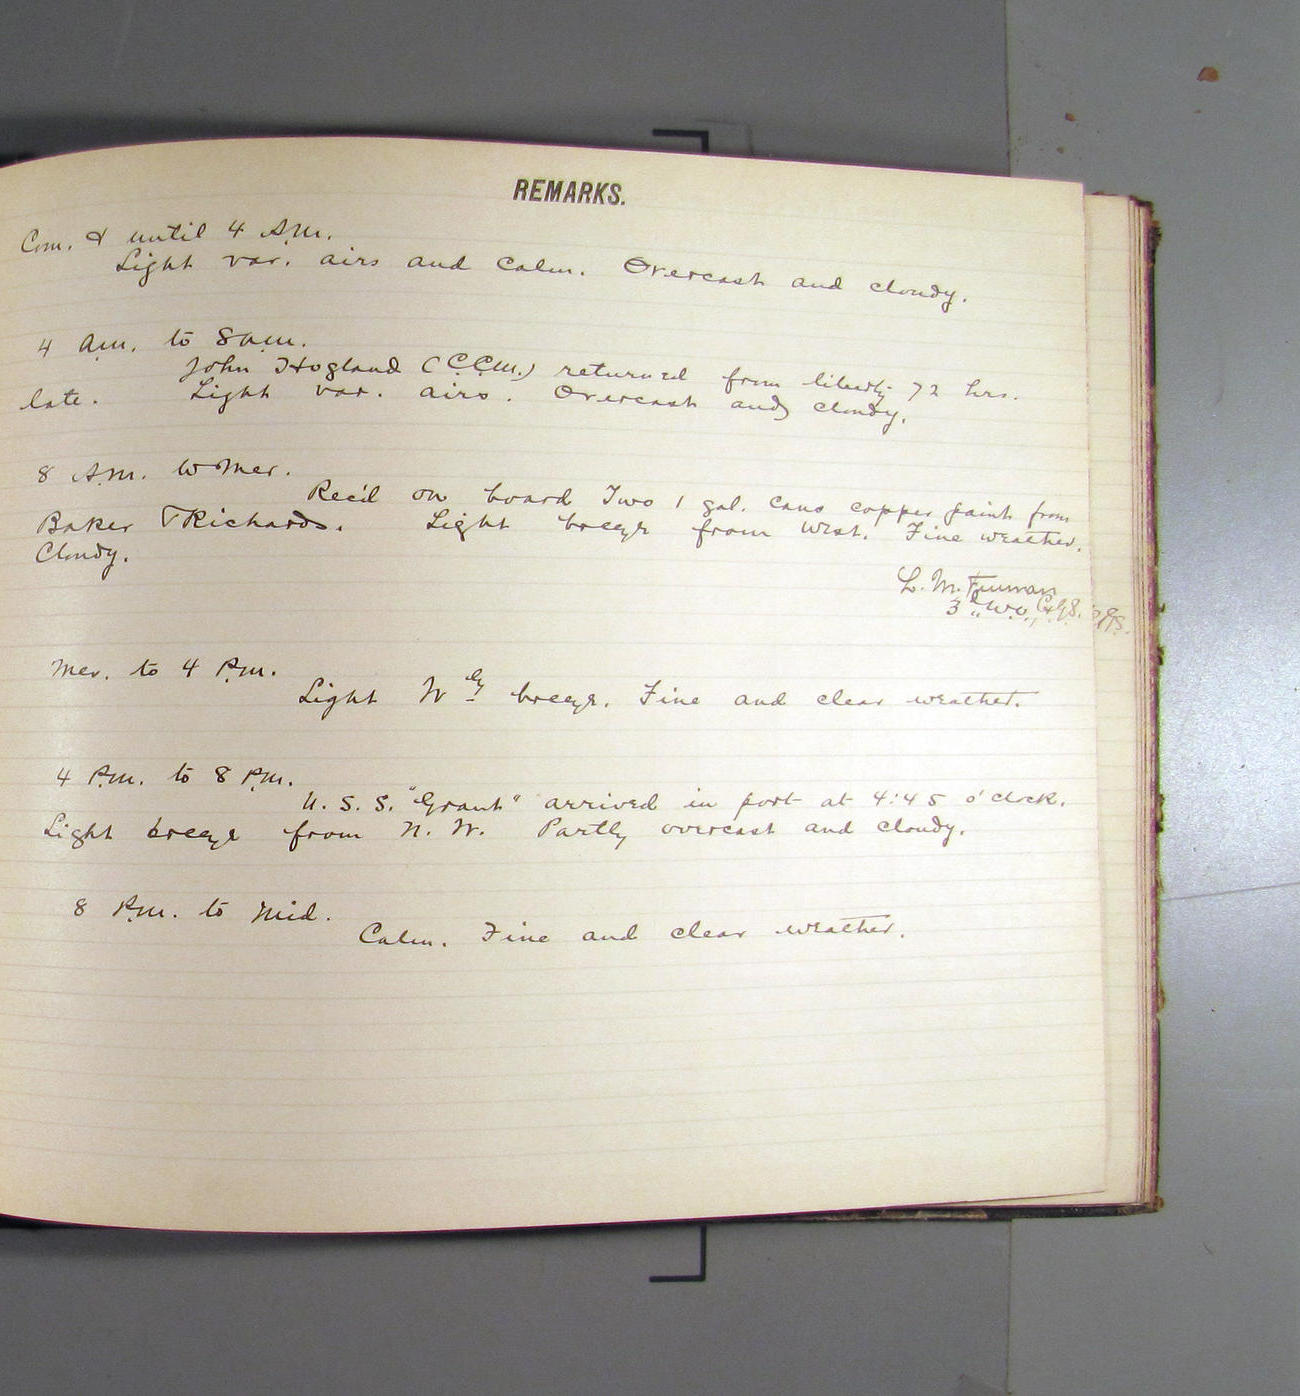 REMARKS.
Com. & until 4 A.M.
Light var. airs and Calm. Overcast and cloudy.
4 a.m. to 8 a.m.
John Hogland (C.C.M.) returned from liberty 72 hrs.
late. Light var. airs. Overcast and cloudy.
8 A.M. to Mer.
Rec'd on board Two 1 gal. cans copper paint from
Baker & Richards. Light breeze from West. Fine weather.
Cloudy.
L. M.
3d W.O.,
Mer. to 4 P.m.
Light Wly breeze. Fine and clear weather.
4 P.m. to 8 P.m.
U. S. S. "Grant" arrived in port at 4:45 o'clock.
Light breeze from N. W. Partly overcast and cloudy.
8 P.m. to Mid.
Calm. Fine and clear weather.